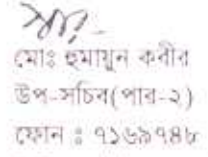 মোঃ হুমায়ুন কবীর
উপ-সচিব(পার-২)
ফোন : ৭১৬৯৭৪৮